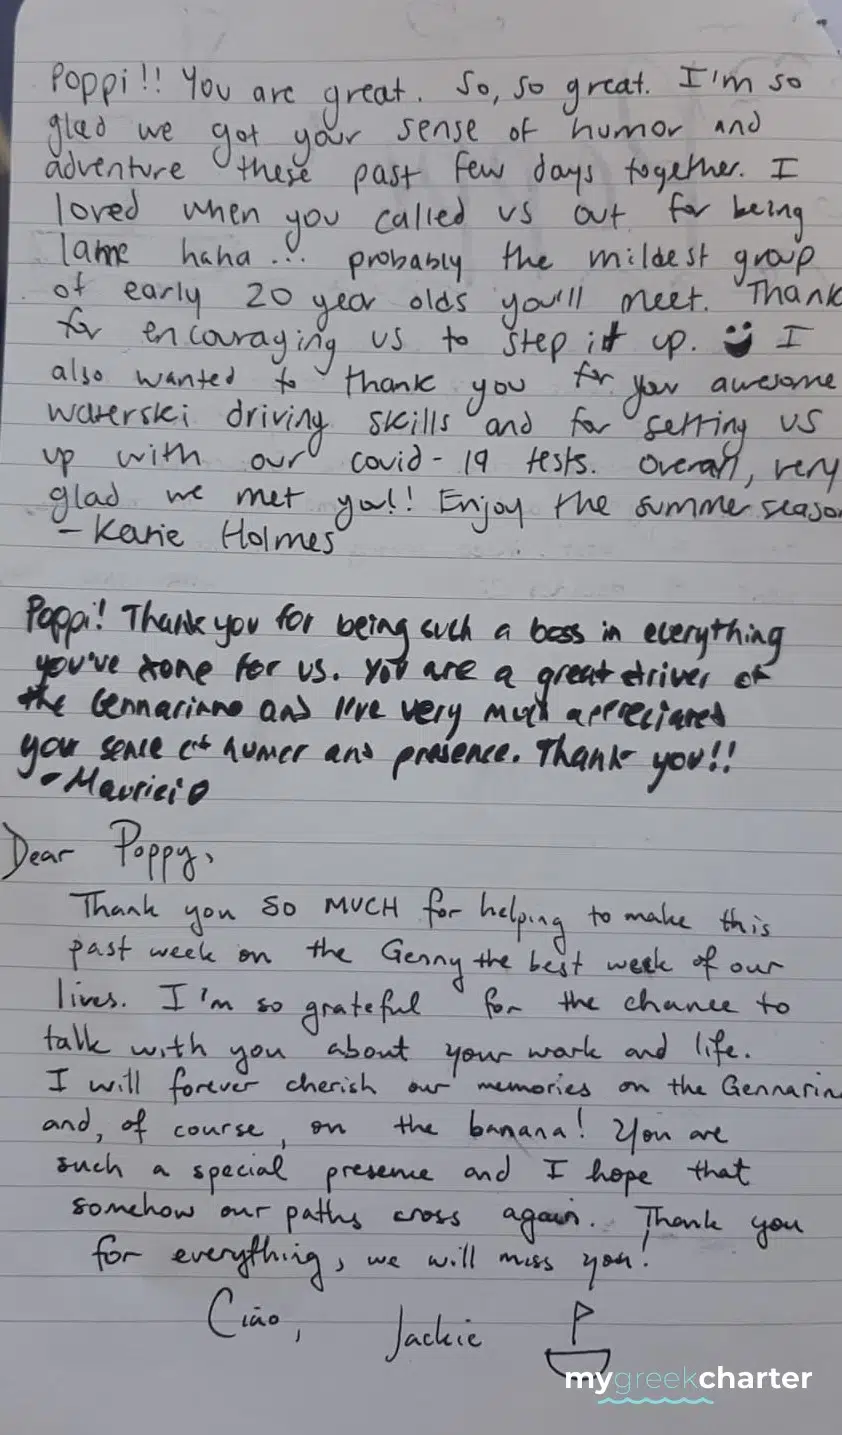 Poppi!! You are great. So, so great. I'm so
glad we got your sense of humor and
adventure these past few days together. I
loved when you called us out for being
lame haha... probably the mildest group
of early 20 year olds you'll meet. Thank
for encouraging us to step it up. I
also wanted to thank you for your awesome
waterski driving skills and for setting us
up with our covid-19 tests. Overall, very
glad we met you!! Enjoy the summer seaso
- Holmes
Poppi! Thank you for being such a boss in everything
you've done for us. You are a great driver of
the Gennarinno and we very much appreciated
your sense of humor and presence. Thank you!!
- Mauricio
Dear Poppy,
Thank you SO MUCH for helping to make this
past week on the Genny the best week of our
lives. I'm so grateful for the chance to
talk with you about your work and life.
I will forever cherish our memories on the Gennarin
and, of course, on the banana! You are
such a special presence and I hope that
somehow our paths cross again. Thank you
for everything, we will miss you!
Ciao, Jackie
mygreekcharter